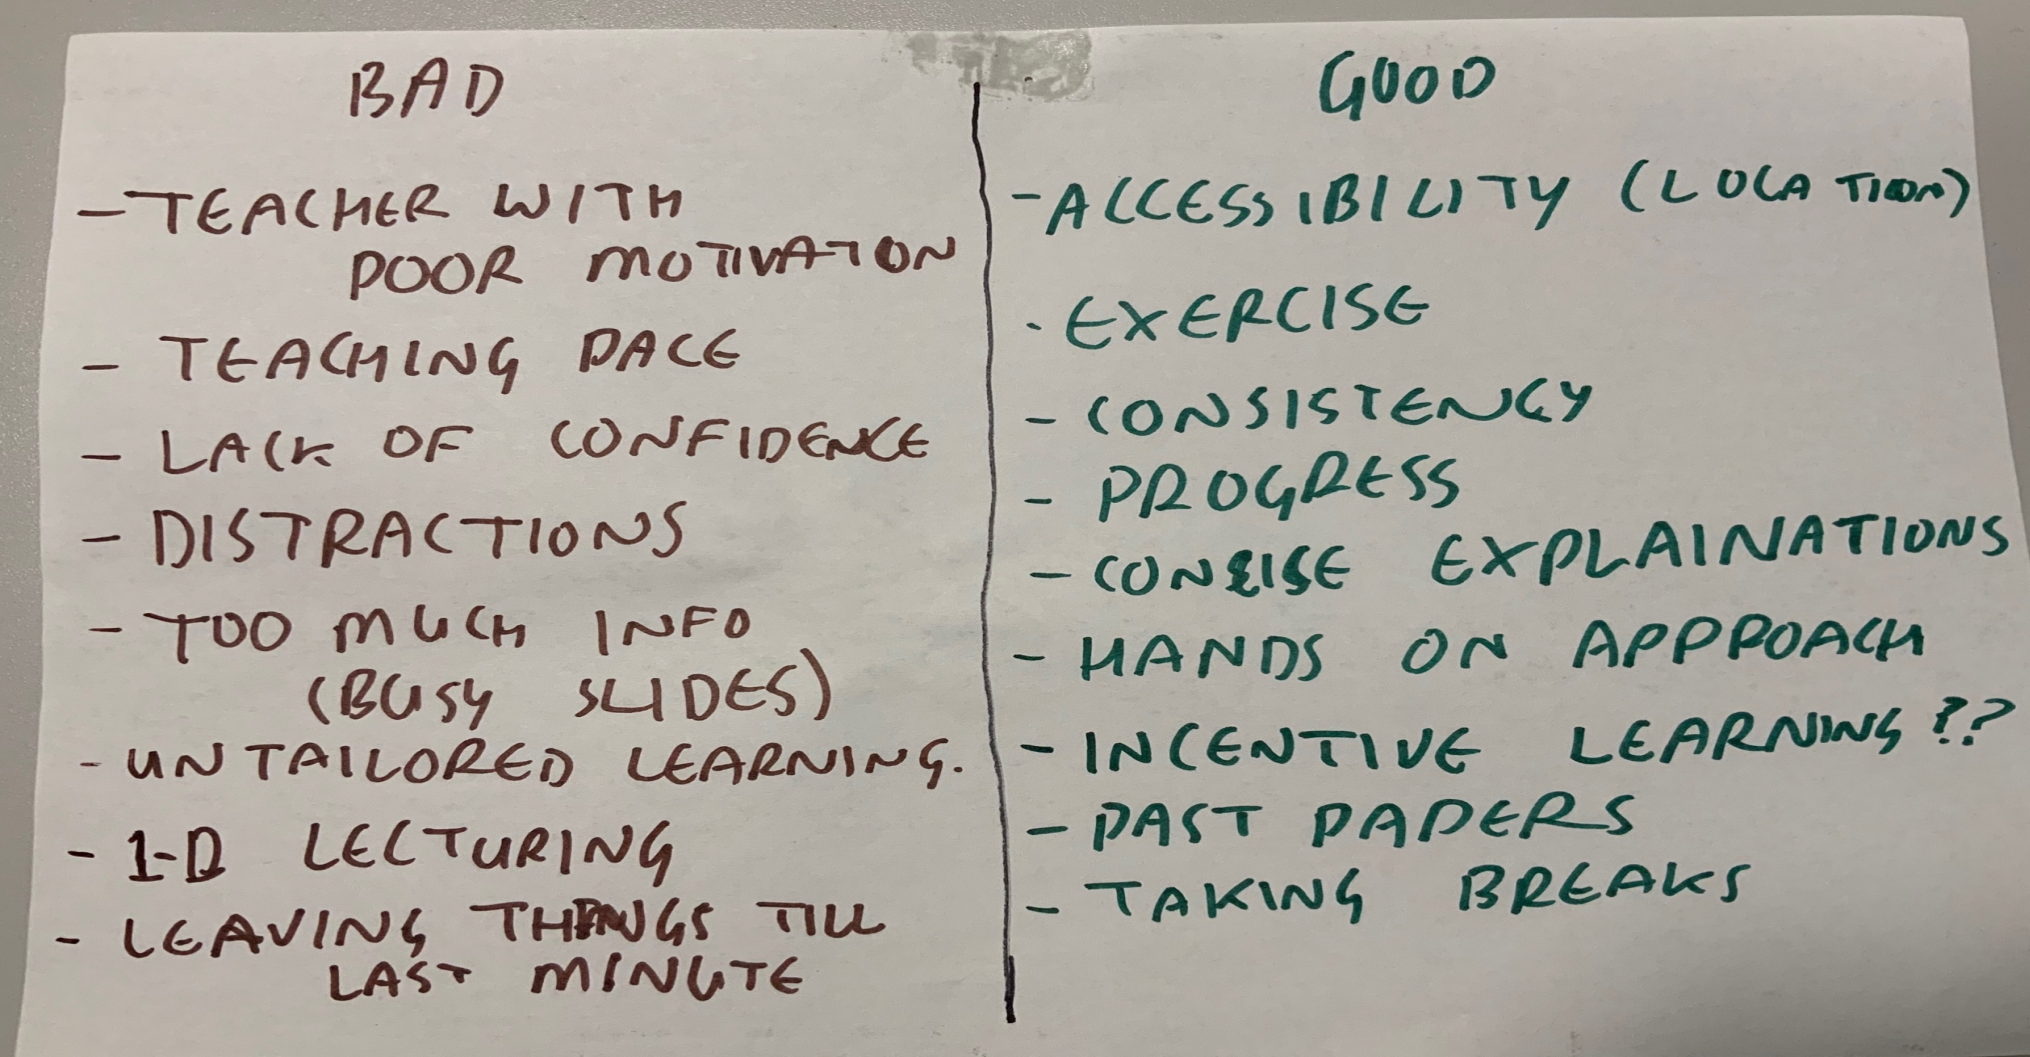 BAD
- TEACHER WITH
POOR MOTIVATION
- TEACHING PACE
- LACK OF CONFIDENCE
- DISTRACTIONS
- TOO MUCH INFO
(BUSY SLIDES)
- UNTAILORED LEARNING.
- 1-D LECTURING
- LEAVING THINGS TILL
LAST MINUTE
GOOD
- ACCESSIBILITY (LOCATION)
· EXERCISE
- CONSISTENCY
- PROGRESS
- CONCISE EXPLAINATIONS
- HANDS ON APPROACH
- INCENTIVE LEARNING??
- PAST PAPERS
- TAKING BREAKS